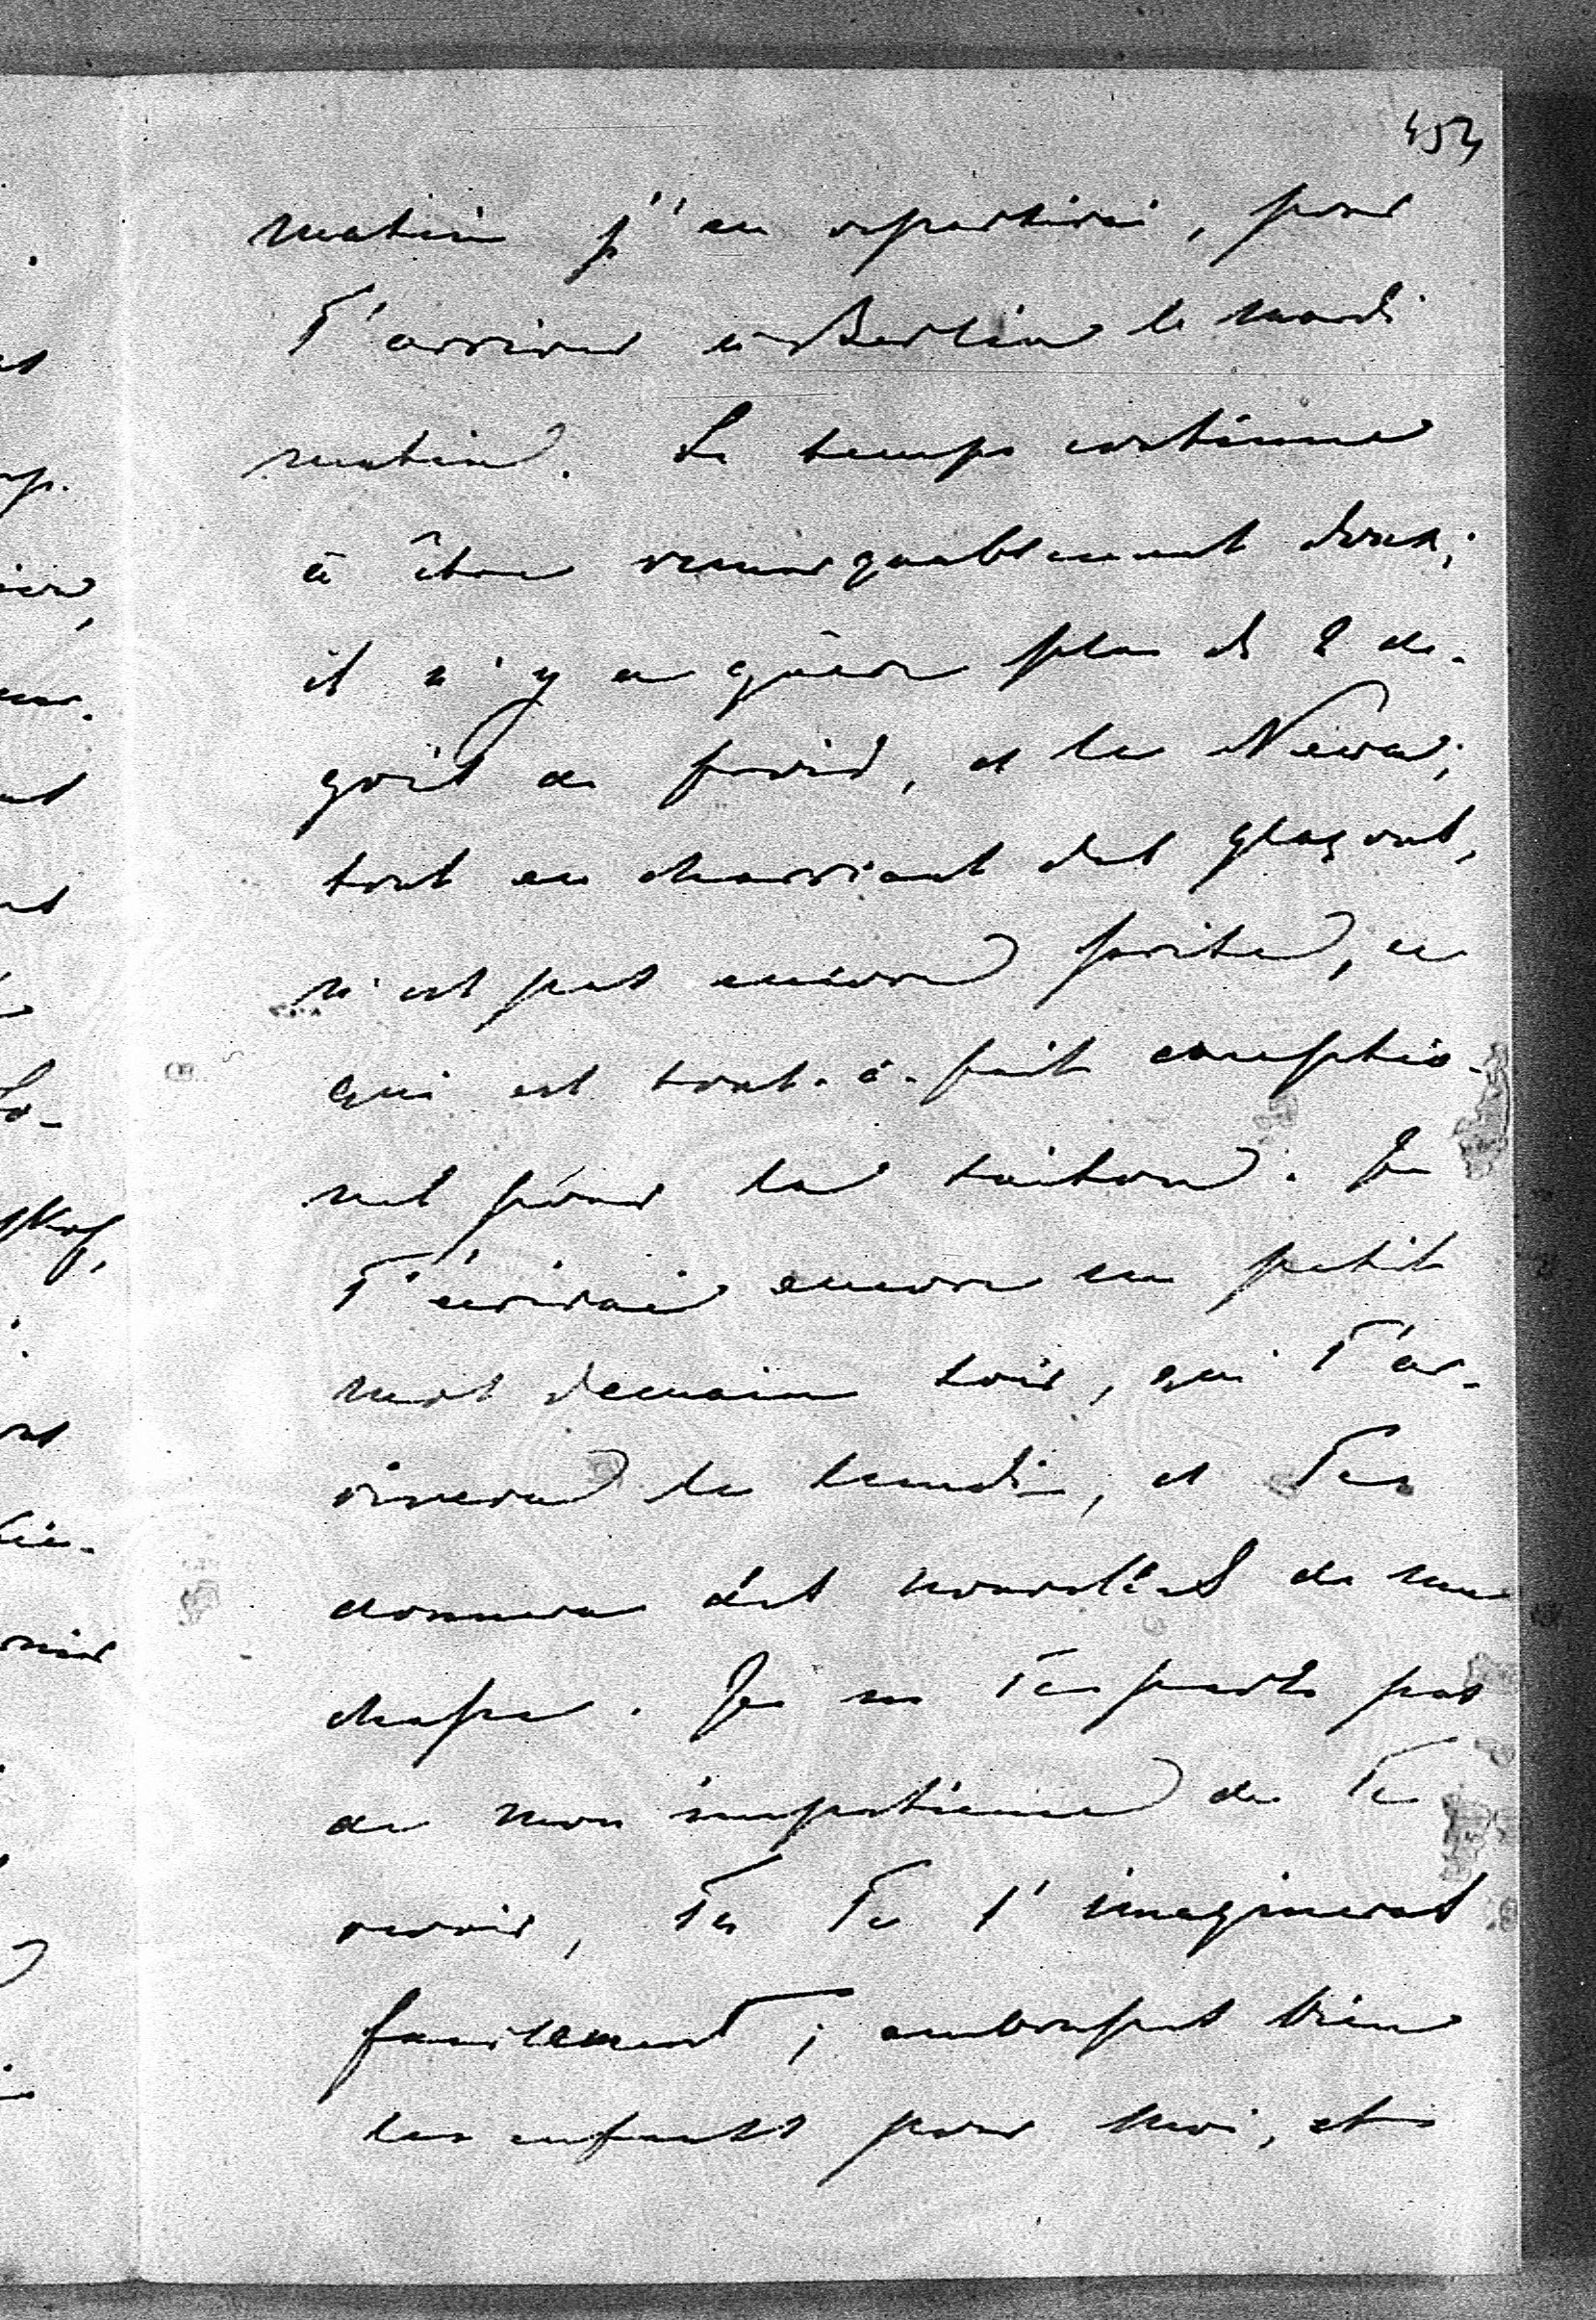 453
matin j'en repartirai, pour
T'arriver à Berlin le mardi
matin. Le temps continue
à être remarquablement doux;
il n'y a guère plus de 2 de-
grés de froid, et la Newa,
tout en charriant des glaçons,
n'est pas encore prise, ce
qui est tout-à-fait exceptio-
nel pour la saison. Je
T'écrirai encore un petit
mot demain soir, qui T'ar-
rivera le lundi, et Te
donnera des nouvelles de ma
chasse. Je ne Te parle pas
de mon impatience de Te
revoir, Tu Te l'imagineras
facilement; embrasse bien
les enfants pour moi, et